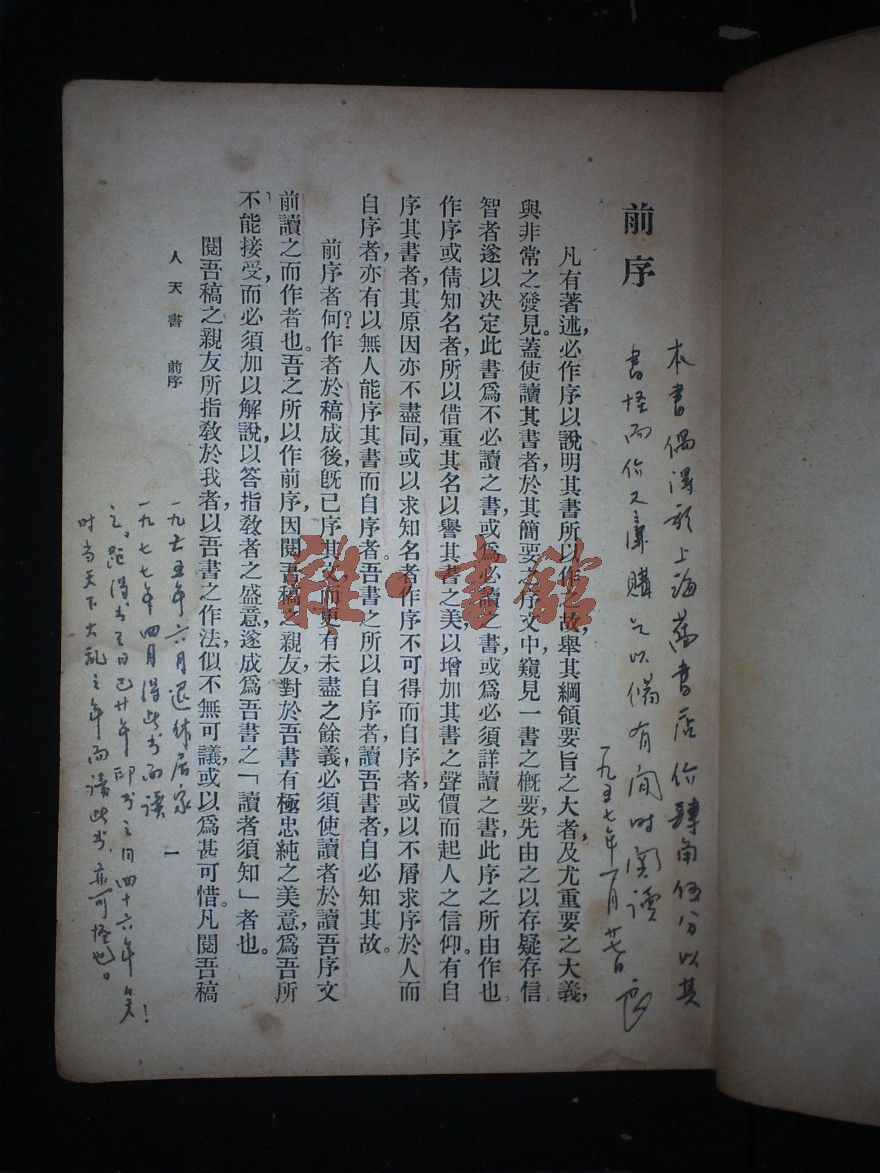 前序
凡有著述，必作序以說明其書所以作之故，舉其綱領要旨之大者，及尤重要之大義，
與非常之發見。蓋使讀其書者，於其簡要之序文中，窺見一書之概要，先由之以存疑存信
智者遂以決定此書爲不必讀之書，或爲必讀之書，或爲必須詳讀之書，此序之所由作也
作序或倩知名者，所以借重其名，以譽其書之美，以增加其書之聲價，而起人之信仰。有自
序其書者，其原因亦不盡同，或以求知名者作序不可得而自序者，或以不屑求序於人而
自序者，亦有以無人能序其書而自序者。吾書之所以自序者，讀吾書者，自必知其故。
前序者何？作者於稿成後，既已序其文，而更有未盡之餘義，必須使讀者於讀吾序文
前讀之而作者也。吾之所以作前序，因閱吾稿之親友，對於吾書有極忠純之美意，爲吾所
不能接受，而必須加以解說，以答指教者之盛意，遂成爲吾書之「讀者須知」者也。
閱吾稿之親友所指敎於我者，以吾書之作法，似不無可議，或以爲甚可惜。凡閱吾稿
人天書 前序
一
本書偶得於上海舊書店价肆角伍分以其
書怪而价又廉購之以備有閒时闲读
一九五七年一月廿七日
一九六五年六月退休居家
一九七七年四月得此书而读
之。距得书之日已廿年印书之日四十六年矣！
时当天下大乱之年而读此书亦可怪也。
雜·書館